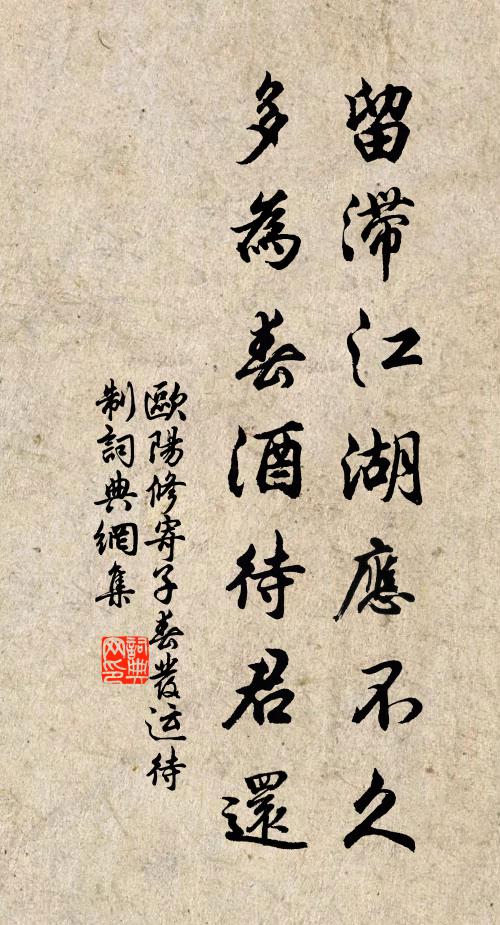 留滯江湖應不久
多為春酒待君還
歐陽修寄子春發运待
制詞典網集
詞典
网印